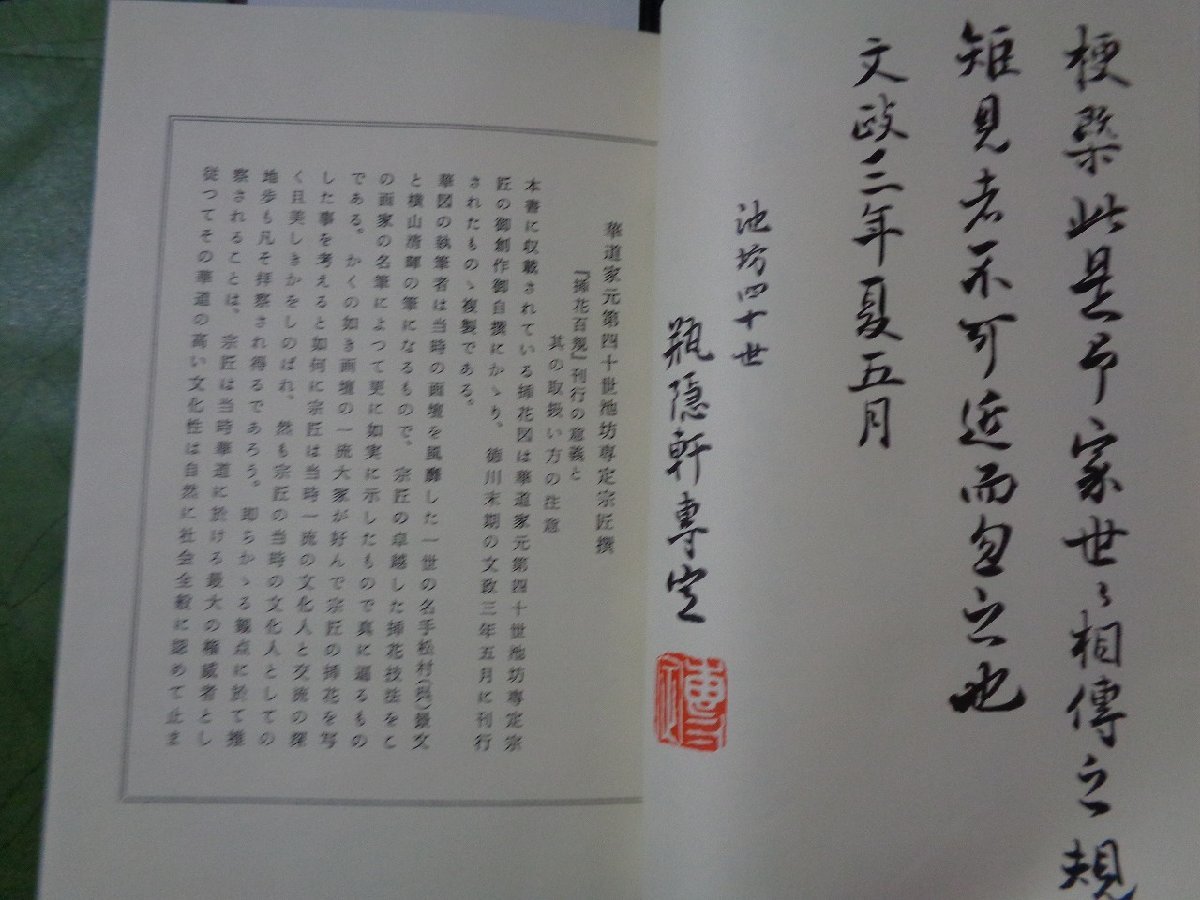 梗槩此是吾家世〻相傳之規
矩見者不可近而忽之也
文政三年夏五月
池坊四十世
瓶隠軒専定
華道家元第四十世池坊専定宗匠撰
『挿花百規』刊行の意義と
其の取扱い方の注意
本書に収載されている挿花図は華道家元第四十世池坊専定宗
匠の御創作御自撰にかゝり、徳川末期の文政三年五月に刊行
されたものゝ複製である。
華図の執筆者は当時の画壇を風靡した一世の名手松村(呉)景文
と横山清暉の筆になるもので、宗匠の卓越した挿花技法をこ
の画家の名筆によつて更に如実に示したもので真に逼るもの
である。かくの如き画壇の一流大家が好んで宗匠の挿花を写
した事を考えると如何に宗匠は当時一流の文化人と交流の深
く且美しきかをしのばれ、然も宗匠の当時の文化人としての
地歩も凡そ拝察され得るであろう。即らかゝる観点に於て推
察されることは、宗匠は当時華道に於ける最大の権威者とし
従つてその華道の高い文化性は自然に社会全般に認めて止ま